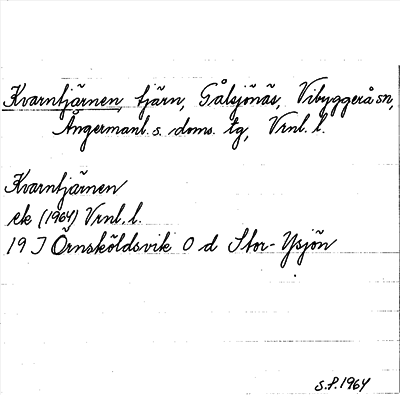 Kvarntjärnen, tjärn, Gålsjönäs, Vibyggerå sn,
Ångermanl. s. doms. tg, Vrnl. l.
Kvarntjärnen
ek (1964) Vrnl. l.
19 J Örnsköldsvik O d Stor-Ysjön
S.P. 1964